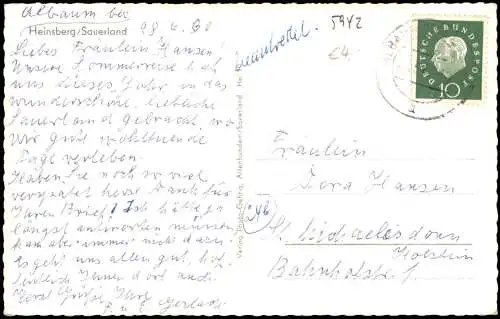 Albaum bei
Heinsberg/Sauerland
28.6.60
Liebes Fräulein Hansen,
Unsere Sommerreise hat
uns dieses Jahr in das
wunderschöne, liebliche
Sauerland gebracht, wo
wir gut wohltuende
Tage verleben.
Haben Sie noch so viel
vergnügt herzl. Dank für
Ihren Brief! Ich hätte ja
längst antworten müssen,
kam aber immer nicht dazu.
Es geht uns allen gut, hof-
fentlich Ihnen dort auch.
Herzl. Grüße Ihre
Gerlach
beantwortet.
5942
£4
Verlag Photo-Gehrig, Altenhundem/Sauerland
DEUTSCHE BUNDESPOST
10
Fräulein
Dora Hansen
(24b)
St. Michaelisdonn
Holstein
Bahnhofstr.